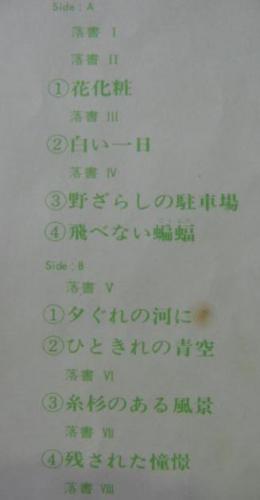 Side : A
落書 I
落書 II
①花化粧
落書 III
②白い一日
落書 IV
③野ざらしの駐車場
④飛べない蝙蝠
Side : B
落書 V
①夕ぐれの河に
②ひときれの青空
落書 VI
③糸杉のある風景
落書 VII
④残された憧憬
落書 VIII